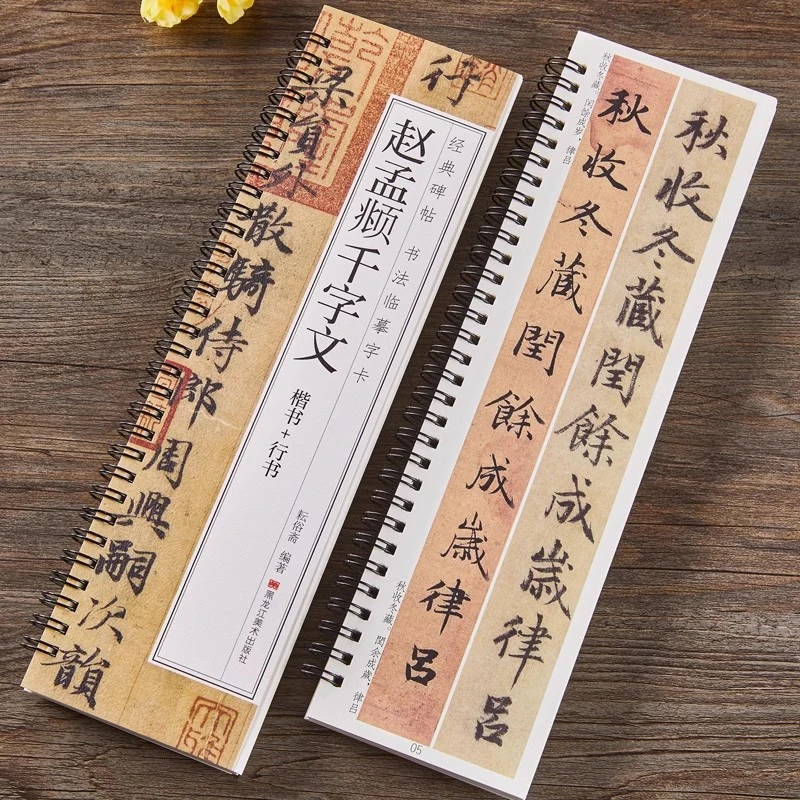 行
梁員外散騎侍郎周興嗣次韻
经典碑帖 书法临摹字卡
赵孟𫖯千字文
楷书+行书
耘俗斋 编著
黑龙江美术出版社
秋收冬藏。闰馀成岁，律吕
秋收冬藏閏餘成歲律呂
秋收冬藏閏餘成歲律呂
秋收冬藏。閏余成歲，律吕
05